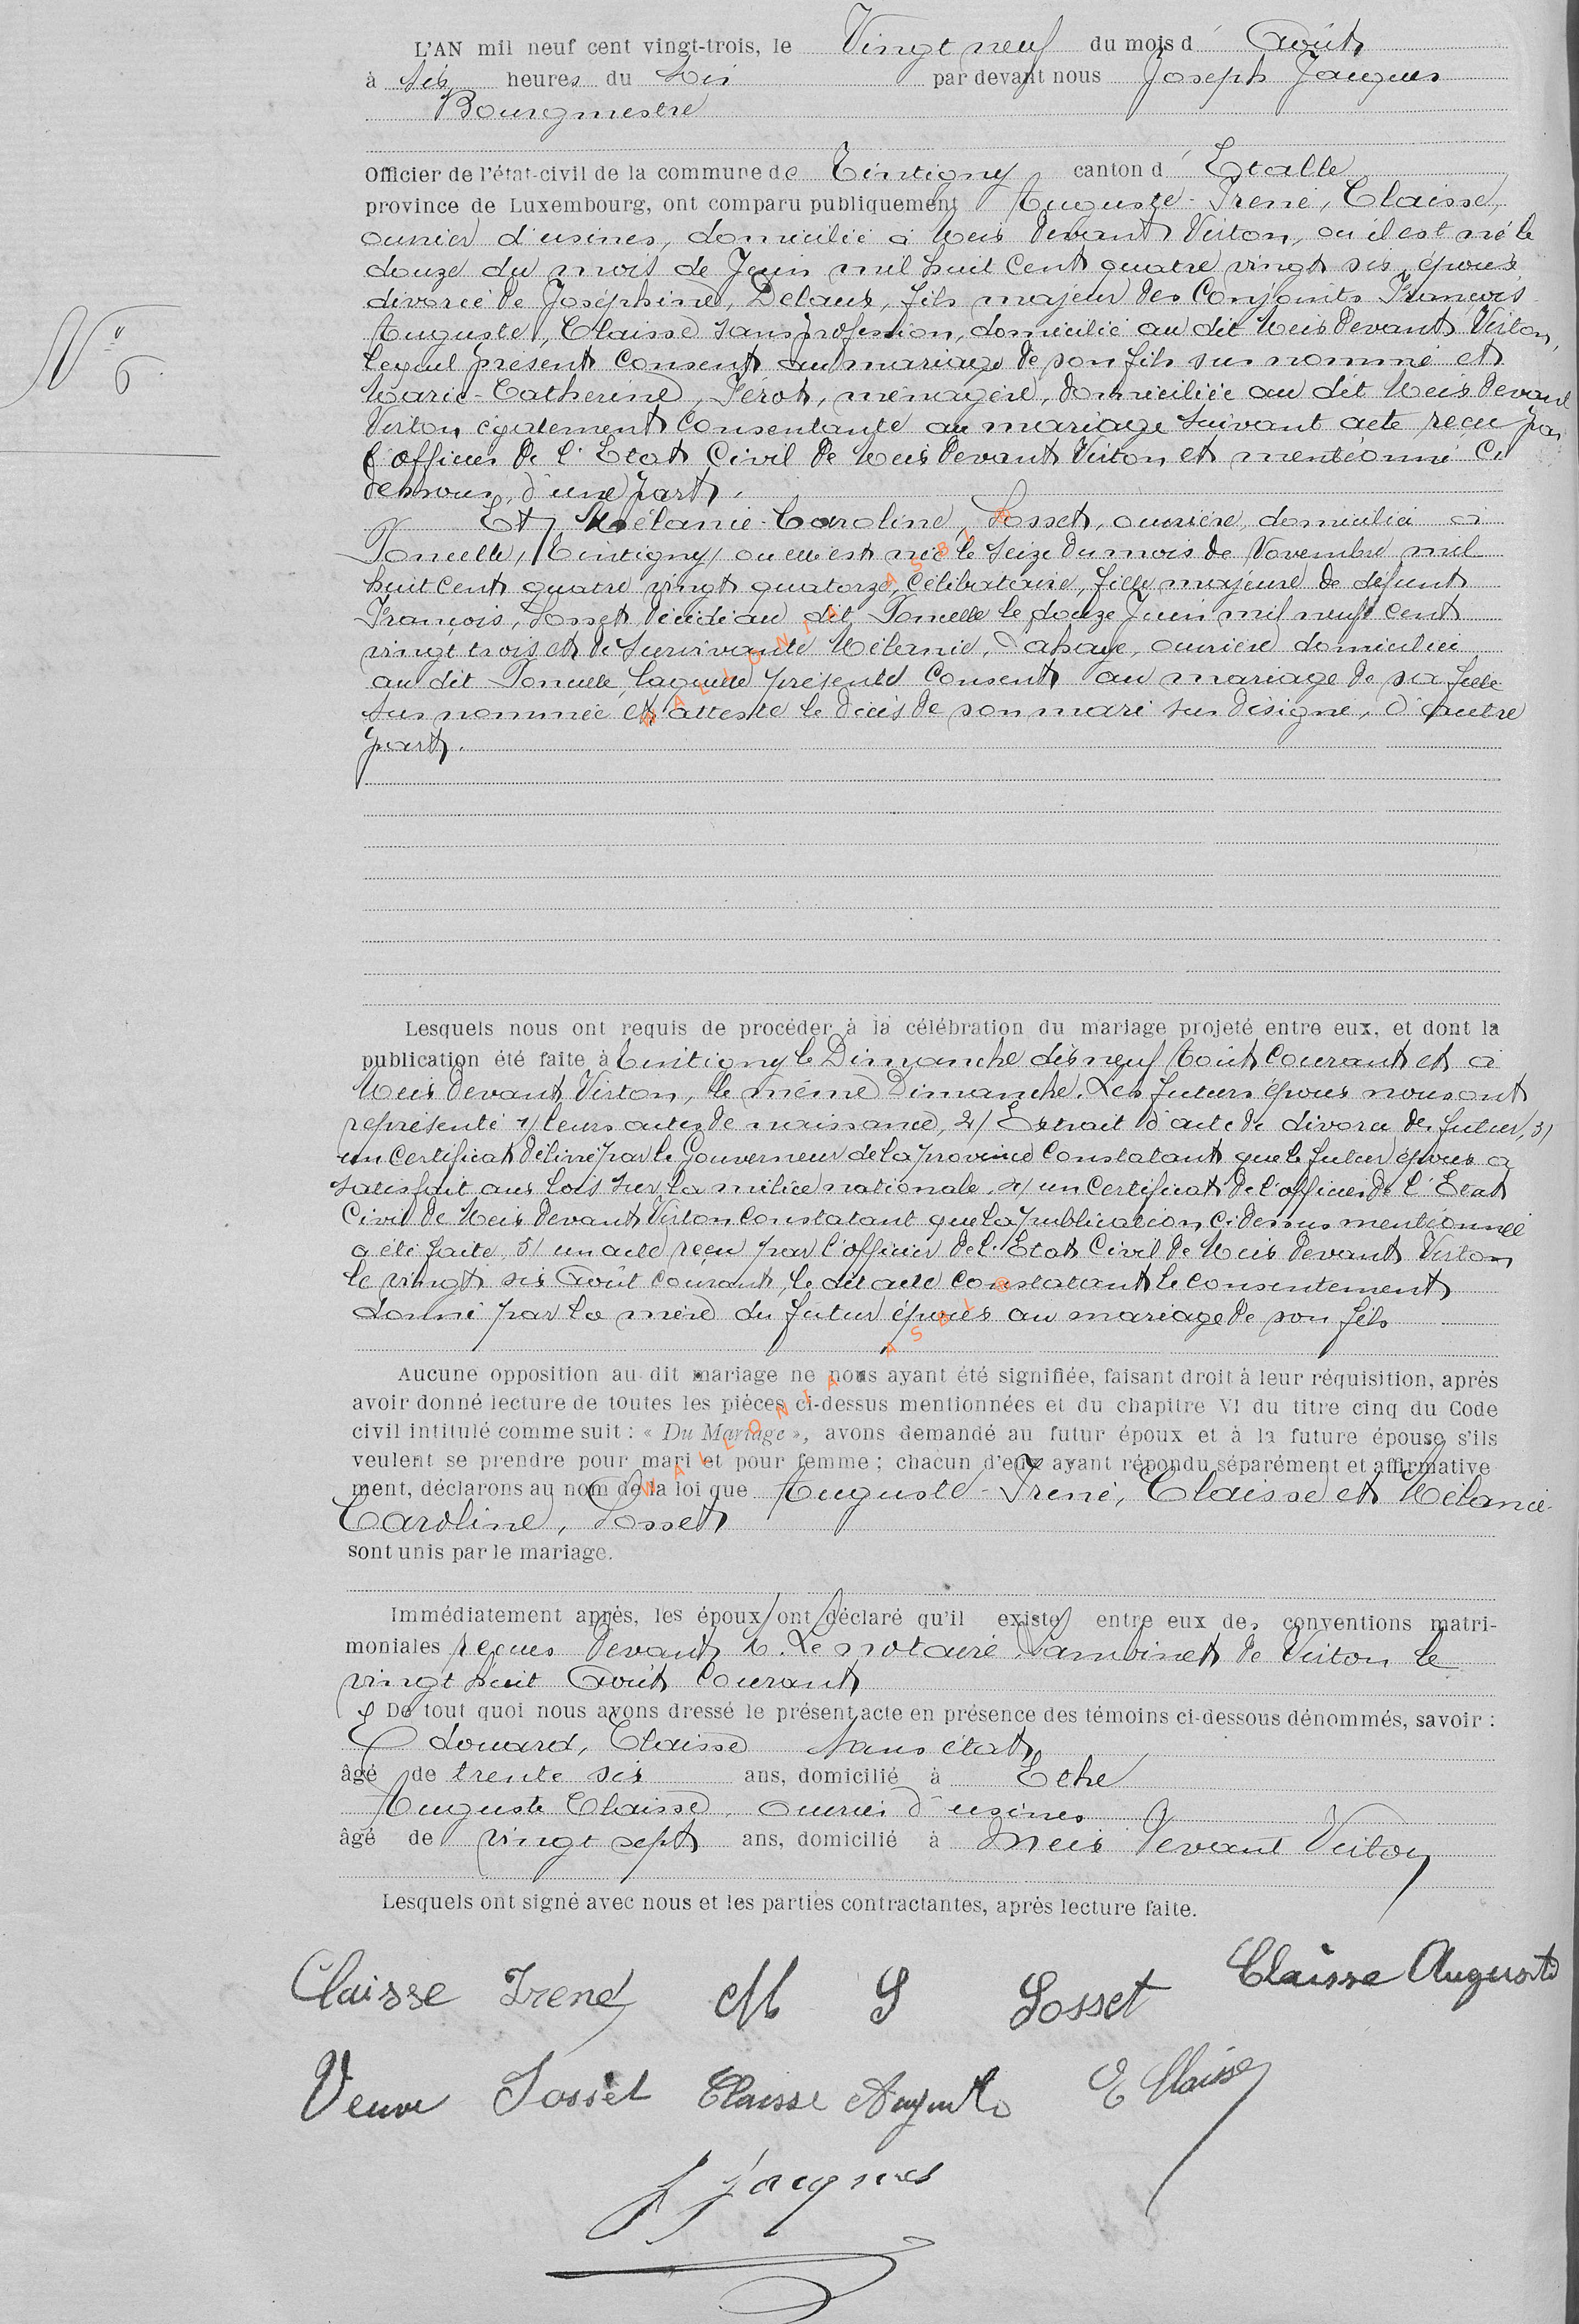 L'AN mil neuf cent vingt-trois, le Vingt neuf du mois d' Août
à six heures du soir par devant nous Joseph Jacques
Bourgmestre
Officier de l'état-civil de la commune de Tintigny canton d' Etalle
province de Luxembourg, ont comparu publiquement Auguste-Irené, Claisse,
ouvrier d'usines, domicilié à Meix devant Virton, où il est né le
douze du mois de Juin mil huit cent quatre vingt six, époux
divorcé de Joséphine, Delaux, fils majeur des conjoints François
Auguste, Claisse sans profession, domicilié au dit Meix devant Virton,
lequel présent consent au mariage de son fils sus nommé et
Marie-Catherine, Férot, ménagère, domiciliée au dit Meix devant
Virton également consentante au mariage suivant acte reçu par
l'officier de l'Etat Civil de Meix devant Virton et mentionné ci
dessous, d'une part.
Et Mélanie-Caroline, Sosset, ouvrière, domiciliée à
Poncelle, /Tintigny/ où elle est née le seize du mois de Novembre mil
huit cent quatre vingt quatorze, célibataire, fille majeure de défunt
François, Sosset décédé au dit Poncelle le douze Juin mil neuf cent
vingt trois et de survivante Mélanie, Lahaye, ouvrière domiciliée
au dit Poncelle, laquelle présente consent au mariage de sa fille
sus nommée et atteste le décès de son mari sus désigné, d'autre
part.
N° 6.
Lesquels nous ont requis de procéder à la célébration du mariage projeté entre eux, et dont la
publication été faite à Tintigny le Dimanche dix neuf Août courant et à
Meix devant Virton, le même Dimanche. Les futurs époux nous ont
représenté 1/ leurs actes de naissance, 2/ Extrait d'acte de divorce du futur, 3/
un certificat délivré par le Gouverneur de la province constatant que le futur époux a
satisfait aux lois sur la milice nationale, 4/ un certificat de l'officier de l'Etat
Civil de Meix devant Virton constatant que la publication ci dessus mentionnée
a été faite, 5/ un acte reçu par l'officier de l'Etat Civil de Meix devant Virton
le vingt six Août courant, le dit acte constatant le consentement
donné par la mère du futur époux au mariage de son fils
Aucune opposition au dit mariage ne nous ayant été signifiée, faisant droit à leur réquisition, après
avoir donné lecture de toutes les pièces ci-dessus mentionnées et du chapitre VI du titre cinq du Code
civil intitulé comme suit : « Du Mariage », avons demandé au futur époux et à la future épouse s'ils
veulent se prendre pour mari et pour femme ; chacun d'eux ayant répondu séparément et affirmative
ment, déclarons au nom de la loi que Auguste-Irené, Claisse et Mélanie-
Caroline, Sosset
sont unis par le mariage.
Immédiatement après, les époux ont déclaré qu'il existe entre eux des conventions matri-
moniales reçues devant M. Le notaire Lambinet de Virton le
vingt huit Août courant
De tout quoi nous avons dressé le présent acte en présence des témoins ci-dessous dénommés, savoir :
Edouard, Claisse sans état
âgé de trente six ans, domicilié à Ethe
Auguste Claisse, ouvrier d'usines
âgé de vingt sept ans, domicilié à Meix devant Virton
Lesquels ont signé avec nous et les parties contractantes, après lecture faite.
Claisse Irené M S Sosset Claisse Auguste
Veuve Sosset Claisse Auguste E Claisse
J Jacques
WALLONIA ASBL ©
WALLONIA ASBL ©